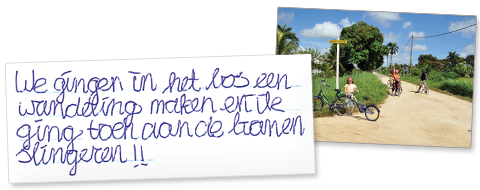 We gingen in het bos een
wandeling maken en ik
ging toen aan de bomen
slingeren !!